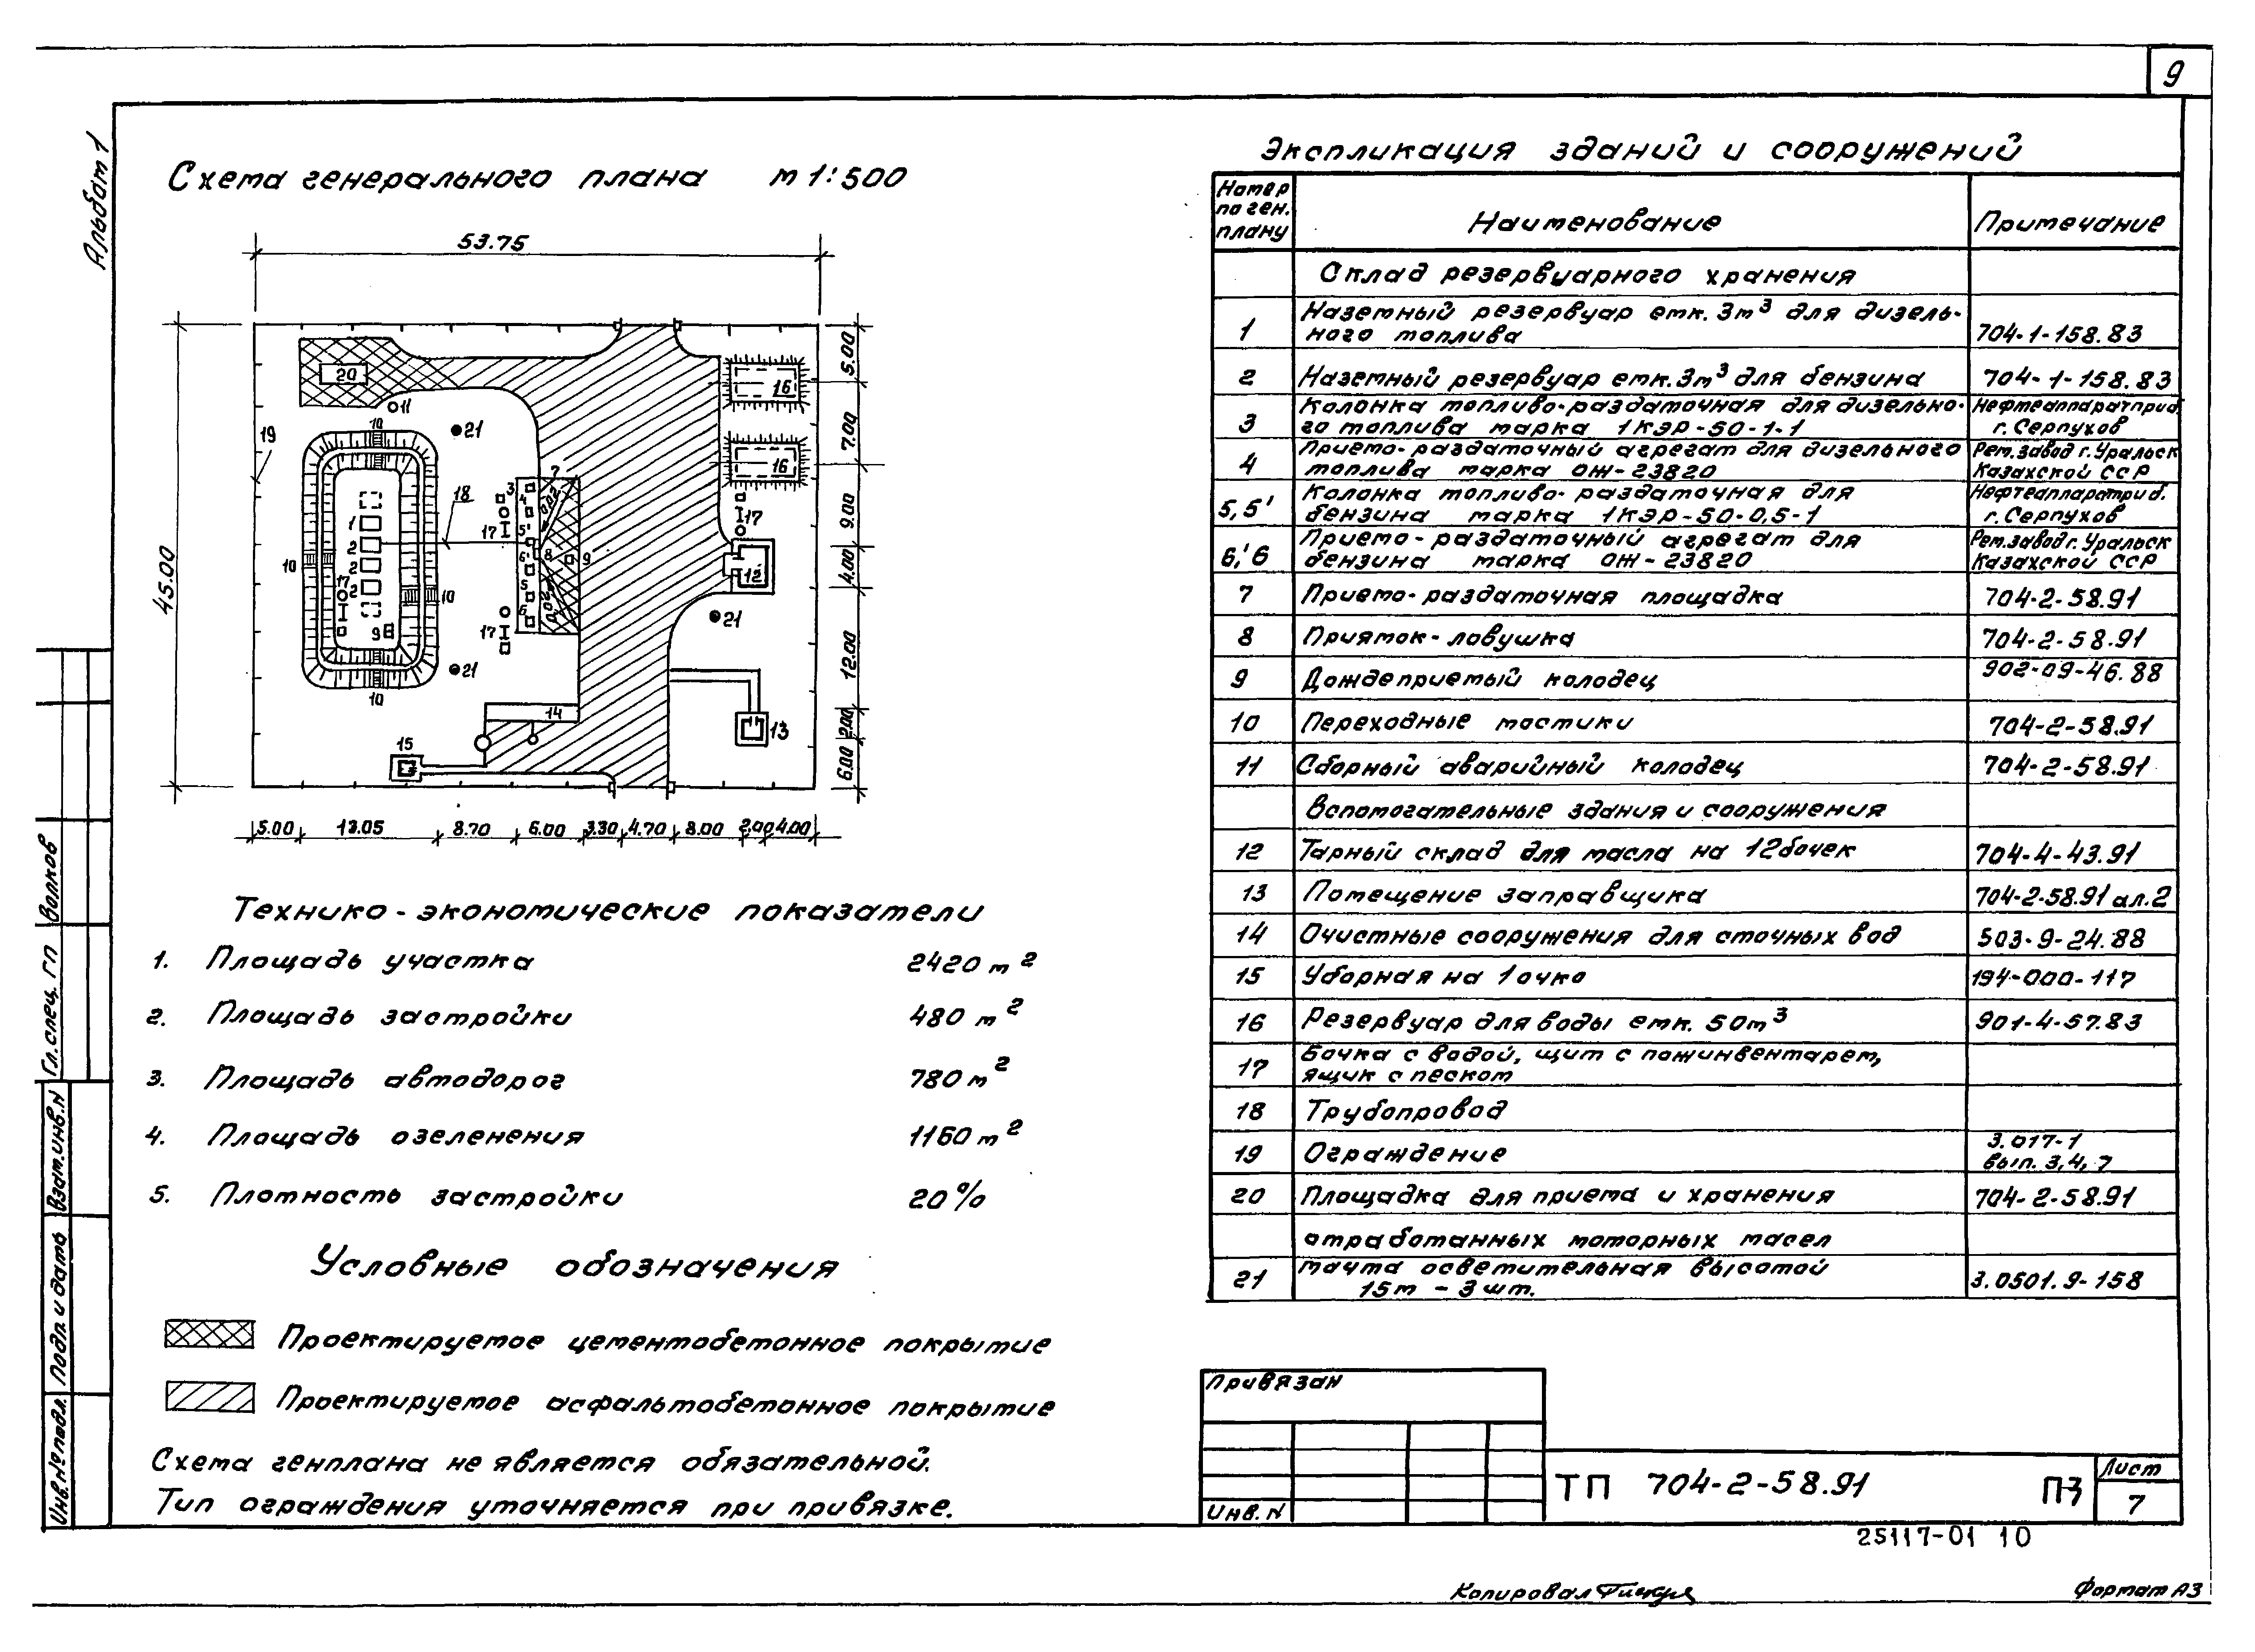 9
Альбом 1
Схема генерального плана м 1:500
53.75
45.00
20
11
10
21
19
16
16
5.00
7.00
9.00
4.00
12.00
2.00
6.00
18
1
2
2
2
17
10
10
9
10
21
3
4
5'
6'
5
6
7
8
9
0.02
0.02
17
17
17
12
21
13
14
15
5.00 13.05 8.70 6.00 3.30 4.70 8.00 2.00 4.00
Технико-экономические показатели
1. Площадь участка 2420 м²
2. Площадь застройки 480 м²
3. Площадь автодорог 780 м²
4. Площадь озеленения 1160 м²
5. Плотность застройки 20%
Условные обозначения
Проектируемое цементобетонное покрытие
Проектируемое асфальтобетонное покрытие
Схема генплана не является обязательной.
Тип ограждения уточняется при привязке.
Экспликация зданий и сооружений
Номер по ген. плану Наименование Примечание
Склад резервуарного хранения
1 Наземный резервуар емк. 3м³ для дизель-
ного топлива 704-1-158.83
2 Наземный резервуар емк. 3м³ для бензина 704-1-158.83
3 Колонка топливо-раздаточная для дизельно- Нефтеаппаратприб.
го топлива марка 1КЭР-50-1-1 г. Серпухов
4 Приемо-раздаточный агрегат для дизельного Рем. завод г. Уральск
топлива марка ОЖ-23820 Казахской ССР
5,5' Колонка топливо-раздаточная для Нефтеаппаратприб.
бензина марка 1КЭР-50-0,5-1 г. Серпухов
6,'6 Приемо-раздаточный агрегат для Рем. завод г. Уральск
бензина марка ОЖ-23820 Казахской ССР
7 Приемо-раздаточная площадка 704-2-58.91
8 Приямок-ловушка 704-2-58.91
9 Дождеприемый колодец 902-09-46.88
10 Переходные мостики 704-2-58.91
11 Сборный аварийный колодец 704-2-58.91
Вспомогательные здания и сооружения
12 Тарный склад для масла на 12 бочек 704-4-43.91
13 Помещение заправщика 704-2-58.91 ал.2
14 Очистные сооружения для сточных вод 503-9-24.88
15 Уборная на 1 очко 194-000-117
16 Резервуар для воды емк. 50м³ 901-4-57.83
17 Бочка с водой, щит с пожинвентарем,
ящик с песком
18 Трубопровод
19 Ограждение 3.017-1
вып. 3,4,7
20 Площадка для приема и хранения 704-2-58.91
отработанных моторных масел
21 мачта осветительная высотой
15м - 3 шт. 3.0501.9-158
Гл. спец. ГП Волков
Взам. инв. N
Подп. и дата
Инв. № подл.
Привязан
Инв. N
ТП 704-2-58.91 ПЗ
Лист
7
25117-01 10
Копировал
Формат А3